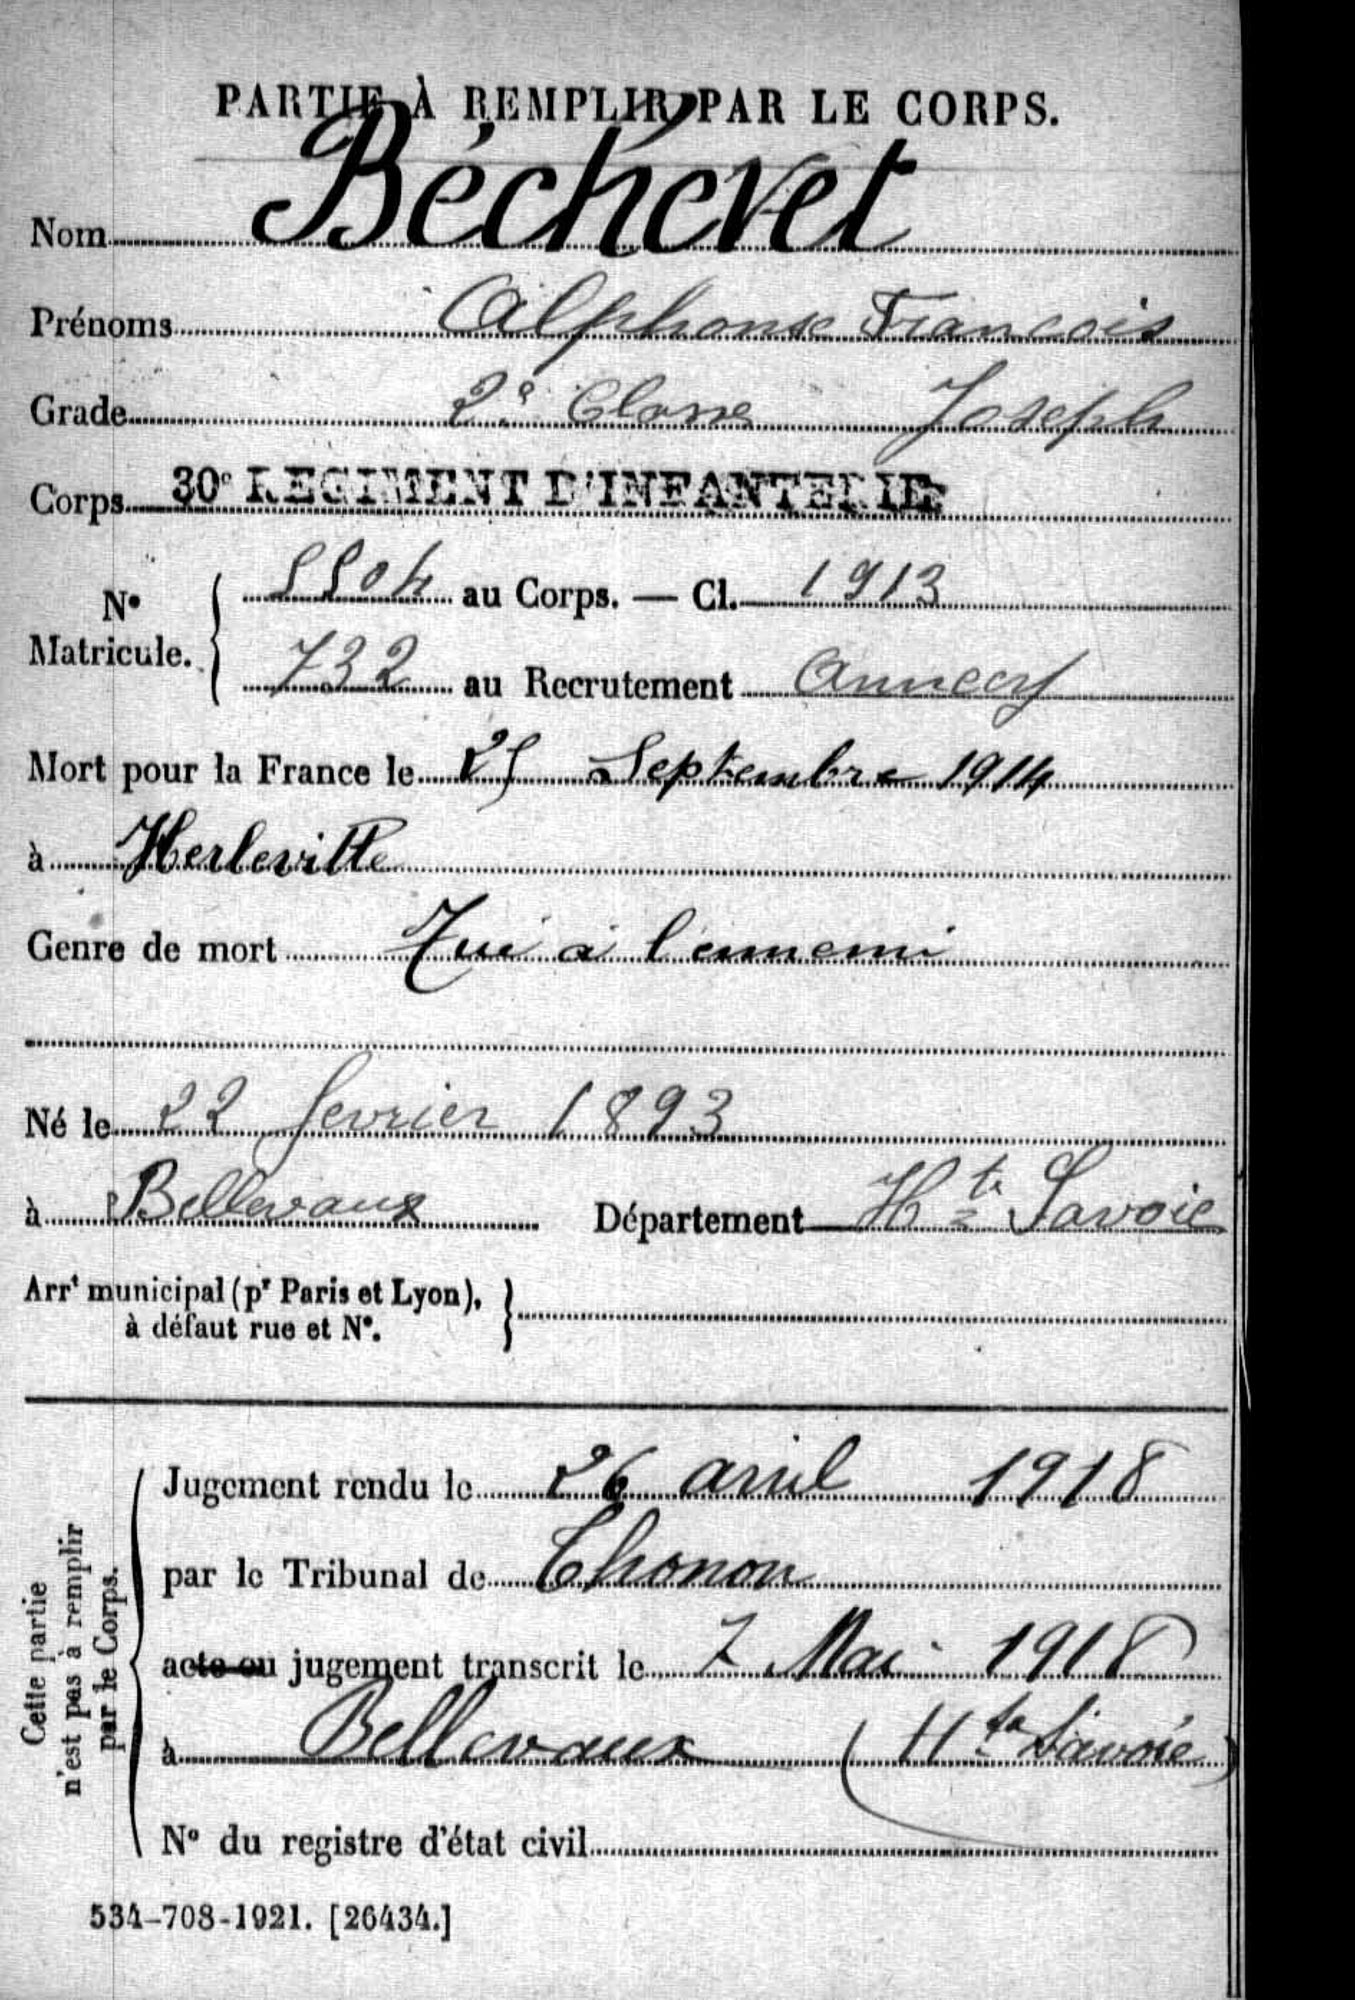 PARTIE À REMPLIR PAR LE CORPS.
Nom Béchevet
Prénoms Alphonse François
Grade 2e Classe Joseph
Corps 30e REGIMENT D'INFANTERIE
No Matricule. 5504 au Corps. — Cl. 1913
732 au Recrutement Annecy
Mort pour la France le 25 Septembre 1914
à Herleville
Genre de mort Tué à l'ennemi
Né le 22 fevrier 1893
à Bellevaux Département Hte Savoie
Arrt municipal (pr Paris et Lyon),
à défaut rue et No.
Cette partie
n'est pas à remplir
par le Corps.
Jugement rendu le 26 avril 1918
par le Tribunal de Thonon
acte ou jugement transcrit le 7 Mai 1918
à Bellevaux (Hte Savoie)
No du registre d'état civil
534-708-1921. [26434.]